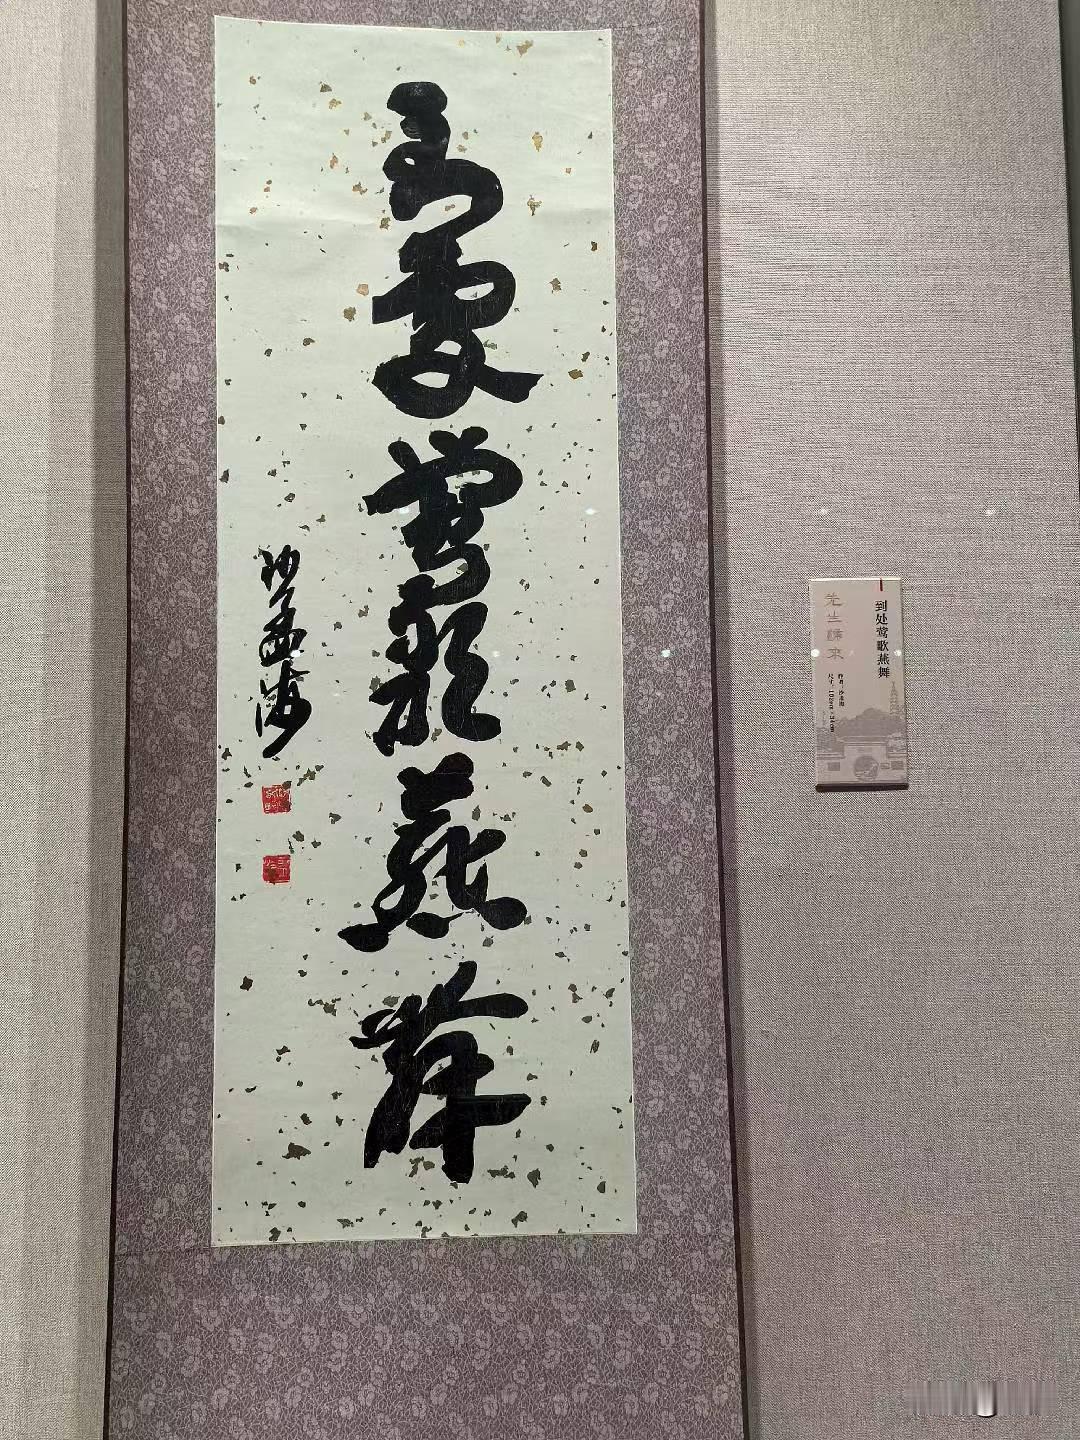 到處鶯歌燕舞
沙孟海
到处莺歌燕舞
作者：沙孟海
先生歸來